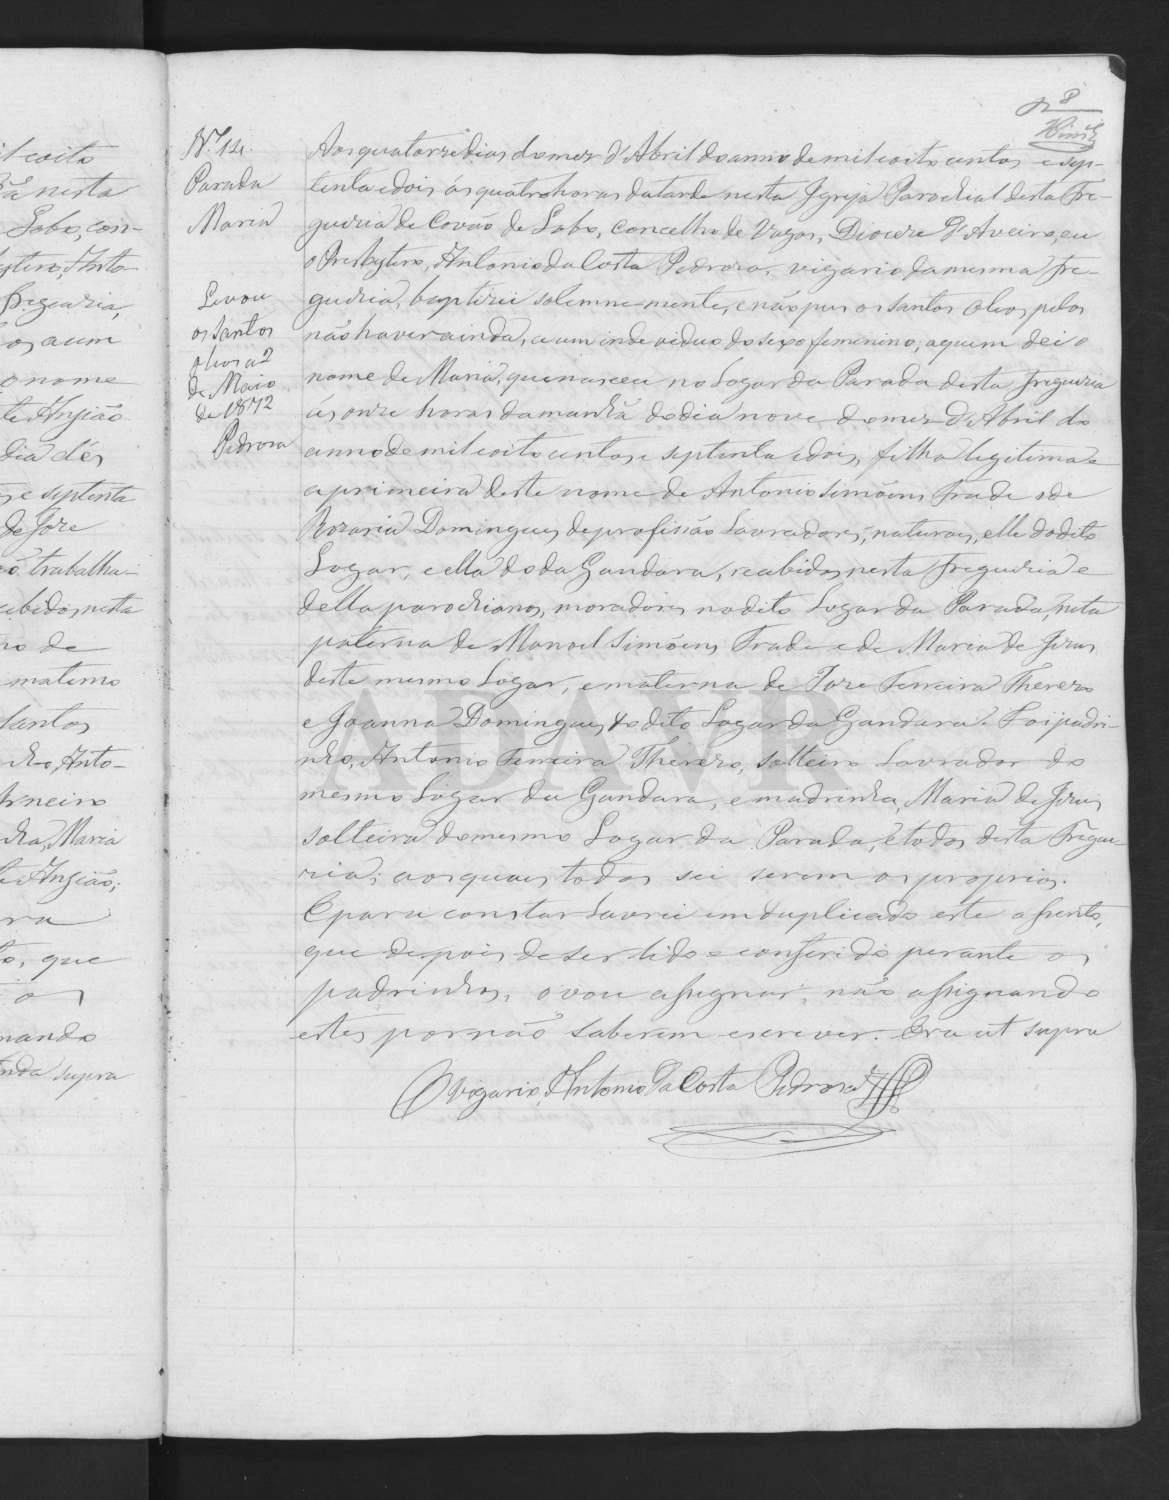 8
N.º 14.
Parada
Maria
Levou
os Santos
oleos a 2
de Maio
de 1872
Pedrosa
Aos quatorze dias do mez d'Abril do anno de mil oito centos e sep-
tenta e dois ás quatro horas da tarde nesta Igreja Parochial desta Fre-
guezia de Covão de Lobo, concelho de Vagos, Diocese d'Aveiro, eu
o Presbytero, Antonio da Costa Pedrosa, vigario da mesma fre-
guezia, baptizei solemne-mente, e não pus os santos oleos pelos
não haver ainda, a um individuo do sexo femenino, a quem dei o
nome de Maria, que nasceu no Logar da Parada desta freguezia
ás onze horas da manhã do dia nove do mez d'Abril do
anno de mil oito centos e septenta e dois, filha legitima e
a primeira deste nome de Antonio Simõens Frade e de
Rozaria Domingues de profissão Lavradores, naturaes, elle do dito
Logar, e ella do da Gandara, recebidos nesta freguezia e
della parochianos, moradores no dito Logar da Parada, neta
paterna de Manoel Simõens Frade e de Maria de Jezus
deste mesmo Logar, e materna de Joze Ferreira Therezo
e Joanna Domingues do dito Logar da Gandara. Foi padri-
nho, Antonio Ferreira Therezo, solteiro Lavrador do
mesmo Logar da Gandara, e madrinha, Maria de Jezus
solteira do mesmo Logar da Parada, e todos desta Fregue-
zia; aos quaes todos sei serem os proprios.
E para constar Lavrei em duplicado este assento,
que depois de ser lido e conferido perante os
padrinhos, o vou assignar, não assignando
estes por não saberem escrever. Era ut supra
O vigario, Antonio da Costa Pedrosa
ADAVR
il oito
nesta
Lobo, con-
bytero, Anto-
freguezia,
os a um
o nome
de Ansião
dia dés
s e septenta
de Joze
trabalha-
cebidos nesta
no de
materno
Santos
nho, Anto-
rneiro
nha, Maria
de Ansião;
ra
to, que
os
nando
supra